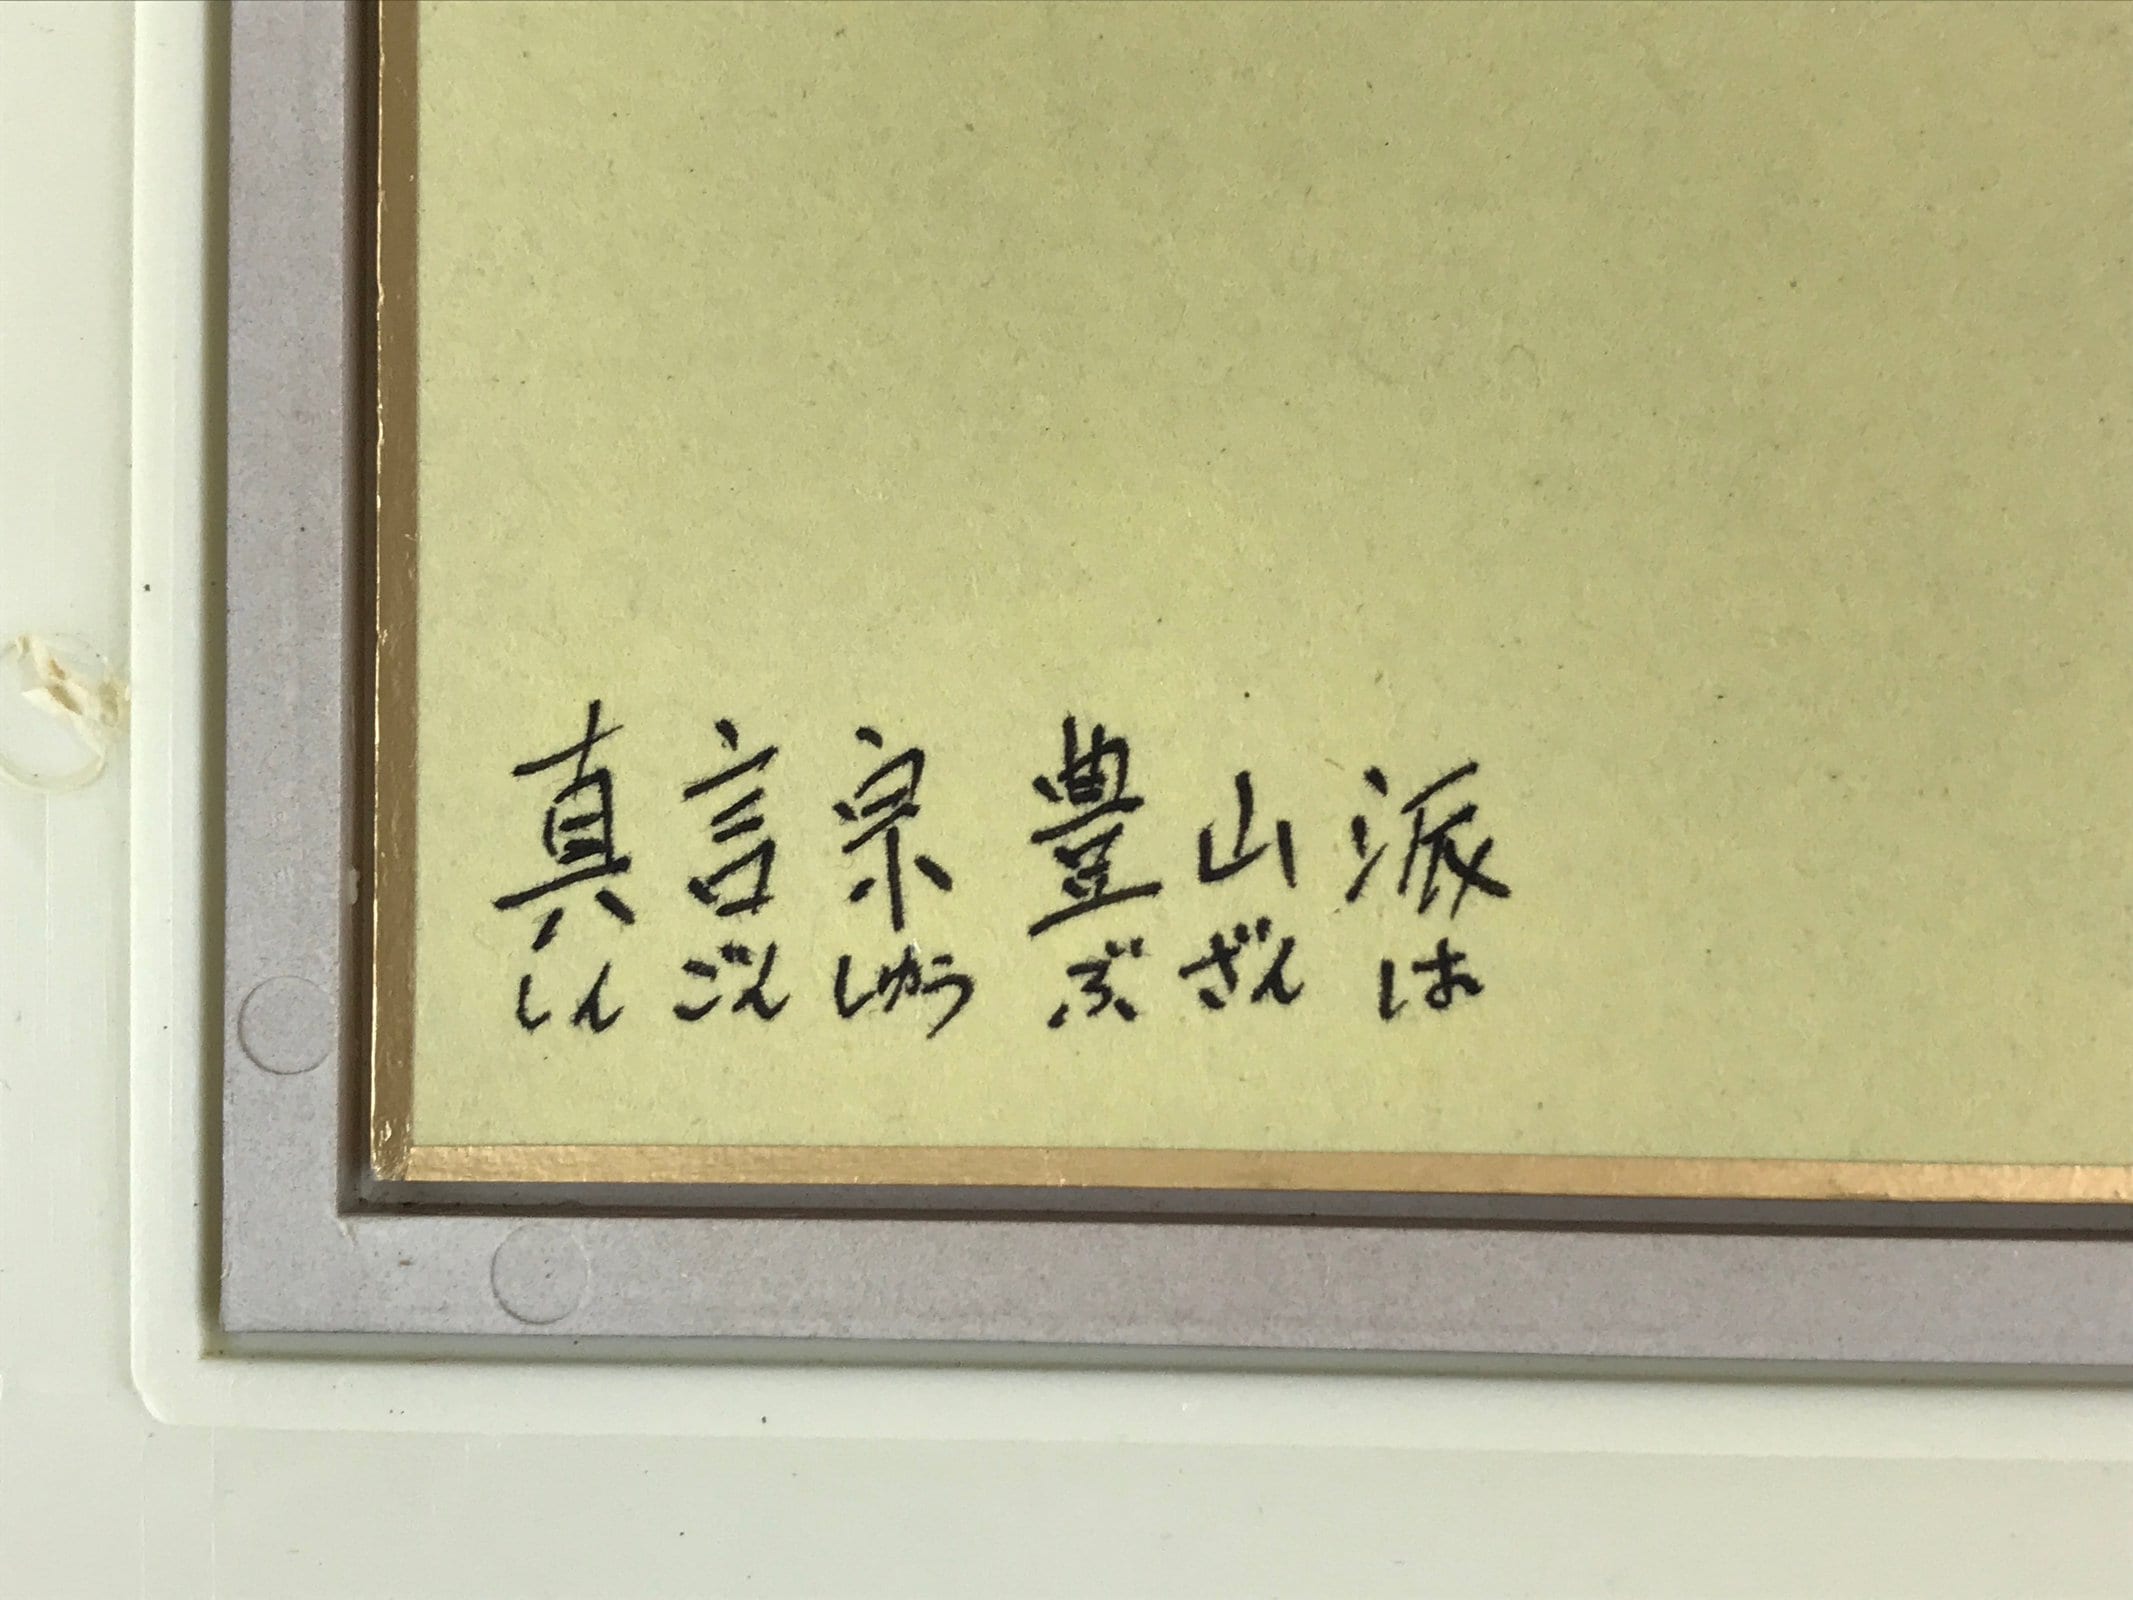 真言宗 豊山派
しんごんしゅう ぶざんは